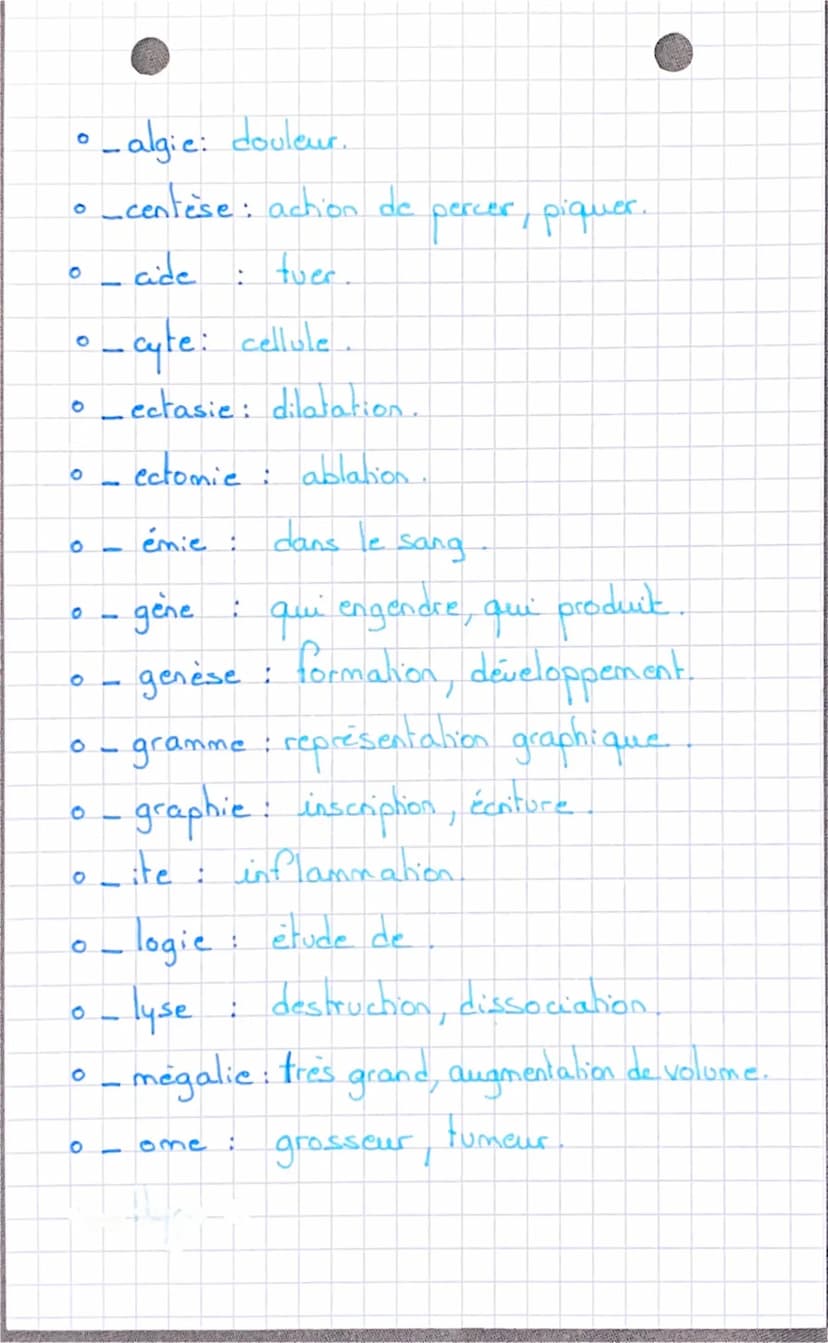 ° _ algie : douleur.
° _ centèse : action de percer, piquer.
° _ cide : tuer.
° _ cyte : cellule.
° _ ectasie : dilatation.
° _ ectomie : ablation.
° _ émie : dans le sang.
° _ gène : qui engendre, qui produit.
° _ genèse : formation, développement.
° _ gramme : représentation graphique.
° _ graphie : inscription, écriture.
° _ ite : inflammation.
° _ logie : étude de.
° _ lyse : destruction, dissociation.
° _ mégalie : très grand, augmentation de volume.
° _ ome : grosseur, tumeur.